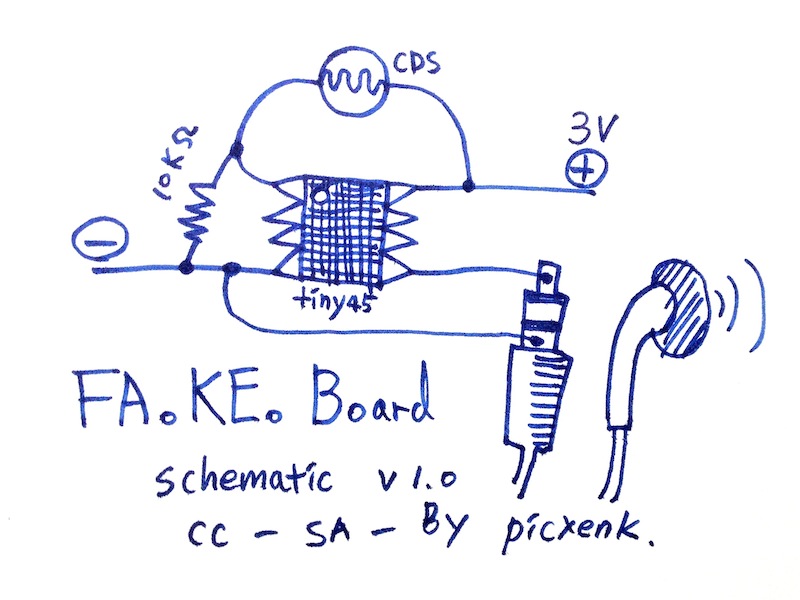 CDS
3V
+
10KΩ
−
tiny45
FA.KE. Board
schematic v 1.0
CC - SA - BY picxenk.